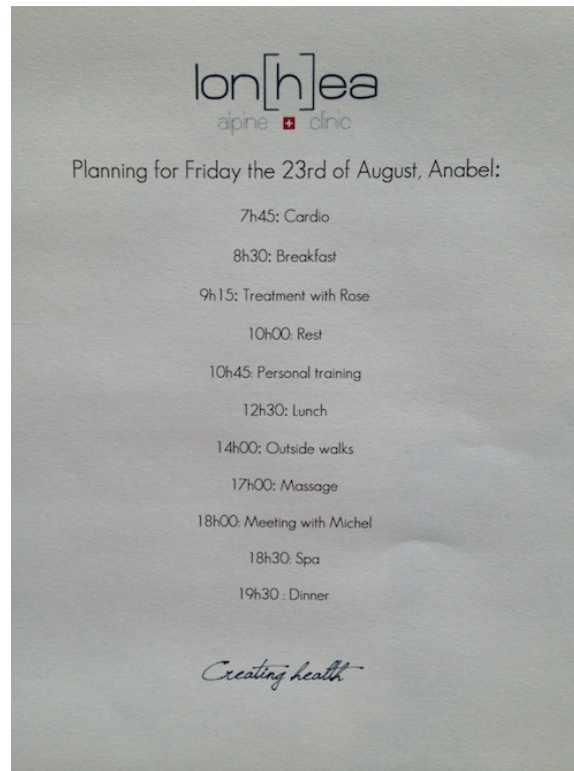 lon[h]ea
alpine clinic
Planning for Friday the 23rd of August, Anabel:
7h45: Cardio
8h30: Breakfast
9h15: Treatment with Rose
10h00: Rest
10h45: Personal training
12h30: Lunch
14h00: Outside walks
17h00: Massage
18h00: Meeting with Michel
18h30: Spa
19h30 : Dinner
Creating health